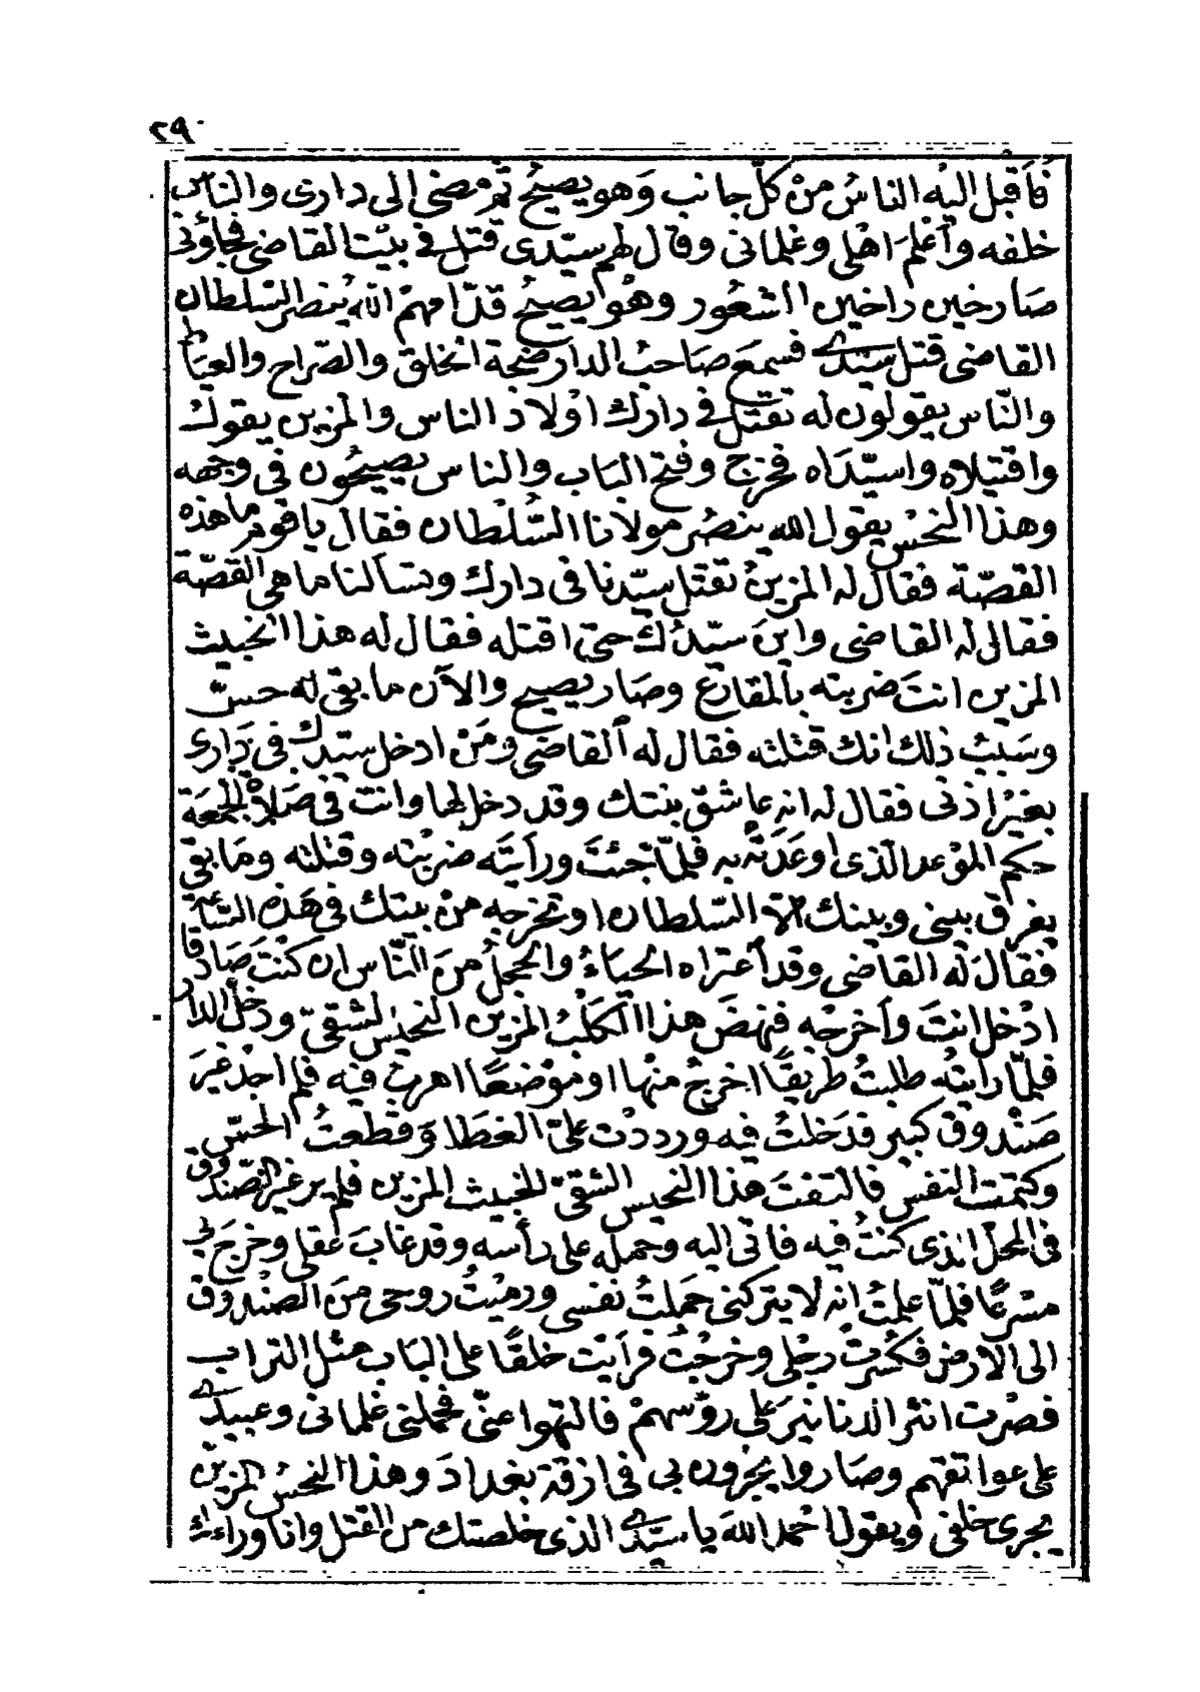 ٢٩
فَأَقبل اليْه الناسُ منْ كلّ جانب وَهو يصيحُ ثم مضى الى دارى والناس
خلفه وأعْلمَ اهْلى وغلمانى وقال لهم سيّدى قتل فى بيْت القاضى فجاؤنى
صارخين راخين الشعُور وهُو يصيحُ قدّامهمْ الله يُنصر السّلطان
القاضى قتل سيّدى فسمعَ صَاحبُ الدار ضجة الخلق والصّراخ والعياط
والنّاس يقولون له تقتل فى دارك اوْلاد الناس والمزين يقول
واقتيلاه واسيّدَاه فخرج وفتح البَاب والناس يصيحُون فى وجهه
وهذا النحسُ يقول الله ينصُر مولانا السُّلْطان فقال يا قوم ما هذه
القصّة فقال له المزينُ تقتل سيّدنا فى دارك وتسألنا ما هى القصّة
فقال له القاضى واينَ سيّدُك حتى اقتله فقال له هذا الخبيث
المزين انتَ ضربته بالمقارع وصَار يصيح والآن ما بقى له حسّ
وسَببُ ذلك انك قتلته فقال له القاضى ومَنْ ادخل سيّدك فى دَارى
بغيْر اذنى فقال له انه عاشق بنتك وقد دخل لها وانت فى صَلاة الجمعَة
حكم الموْعد الّذى اوعَدَتْه به فلمّا جئتَ ورأيتَه ضربْته وقتلته ومَا بقى
يفرق بينى وبينك الّا السّلطان او تخرجه منْ بيتك فى هَذه السّاعة
فقالَ لَه القاضى وقد أعتراه الحيَاءُ والخجلُ منَ النَّاس ان كنْتَ صَادقا
ادْخل انتَ وأخرجْه فنهضَ هذا الكلْبُ المزين النحيسُ الشقىّ ودخلَ الدار
فلمّا رايتُه طلبتُ طريقًا اخرجُ منْها او موْضعًا اهربُ فيه فلم اجدْ غيرَ
صَنْدوق كبير فدَخلتُ فيه ورددْت علىّ الغطَا وَقطعتُ الحسّ
وكتمت النفس فالتفتَ هذا النحيس الشقىّ الخبيث المزين فلم ير غير الصّندوق
فى المحلّ الذى كنتُ فيه فاتى اليه وحمله على رأسه وقد غابَ عَقلى وخرجَ بى
مسْرعًا فلمّا علمتُ انه لا يتركنى حَملتُ نفسى ورمْيتُ روحى منَ الصنْدوق
الى الارض فكُسرتْ رجْلى وخرجْتُ فرأيت خلقًا على البَاب مثل التراب
فصْرت انثر الدنانيرَ عَلى روُسهمْ فالتهوا عنّى فحملنى غلمانى وعبيدى
على عواتقهم وصَاروا يجرون بى فى ازقة بغدادَ وهذا النحسُ المزين
يجرى خلفى ويقول الحْمد اللهَ يا سيّدى الذى خلصتك من القتل وانا وراءك